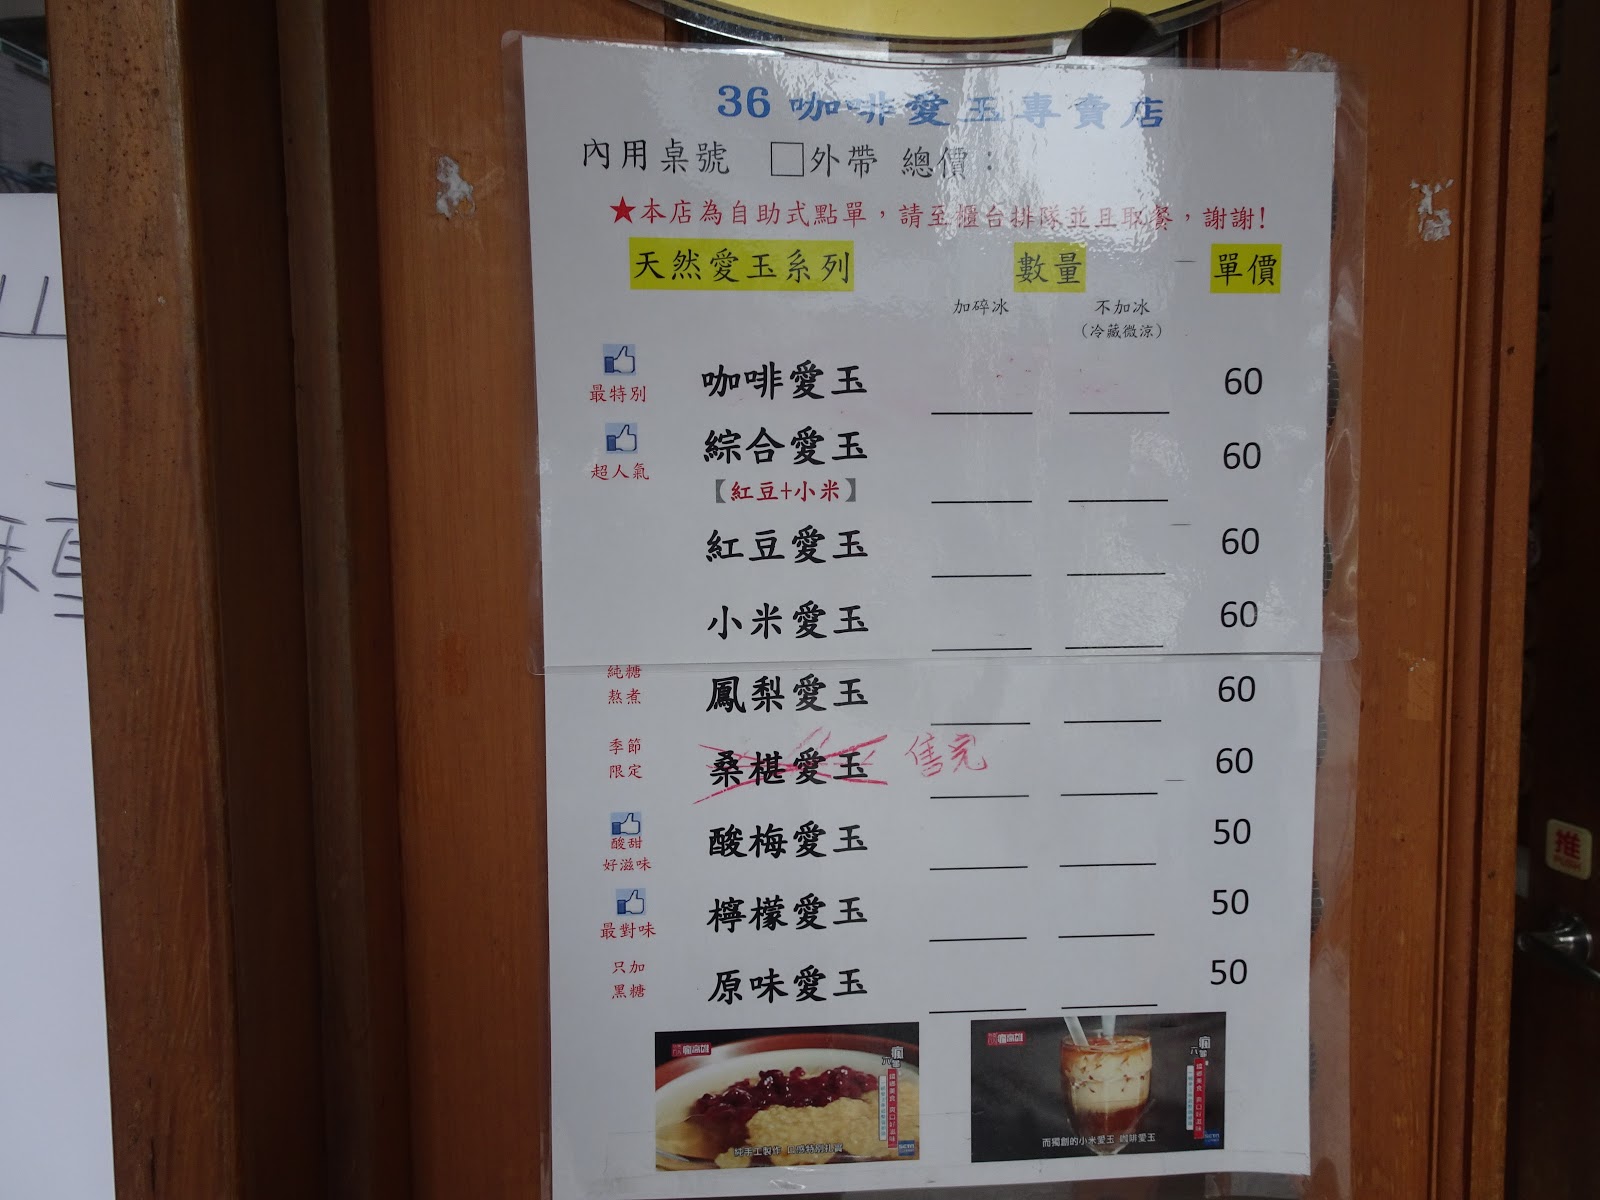 36 咖啡愛玉專賣店
內用桌號 □外帶 總價：
★本店為自助式點單，請至櫃台排隊並且取餐，謝謝!
天然愛玉系列 數量 單價
加碎冰 不加冰
(冷藏微涼)
最特別 咖啡愛玉 60
超人氣 綜合愛玉 60
【紅豆+小米】
紅豆愛玉 60
小米愛玉 60
純糖
熬煮 鳳梨愛玉 60
季節
限定 桑椹愛玉 售完 60
酸甜
好滋味 酸梅愛玉 50
最對味 檸檬愛玉 50
只加
黑糖 原味愛玉 50
瘋高雄
純手工製作 口感特別扎實
瘋高雄
而獨創的小米愛玉 咖啡愛玉
推
PUSH